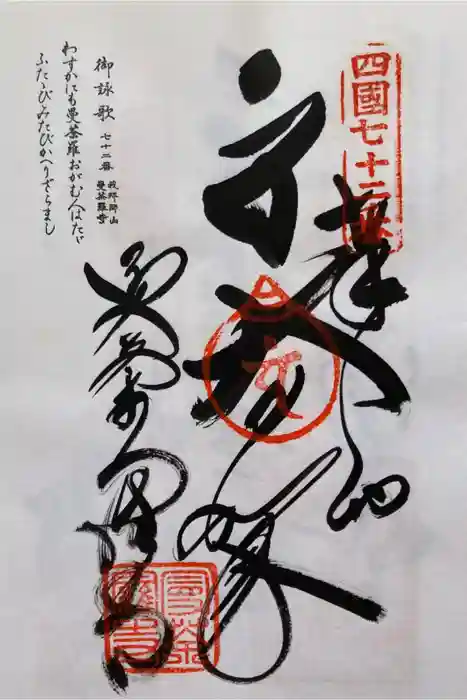 四國七十二番
奉納
曼荼羅寺
曼荼
羅寺
御詠歌 七十二番 我拝師山
曼荼羅寺
わずかにも曼荼羅おがむ人はたゞ
ふたゝびみたびかへらざらまし